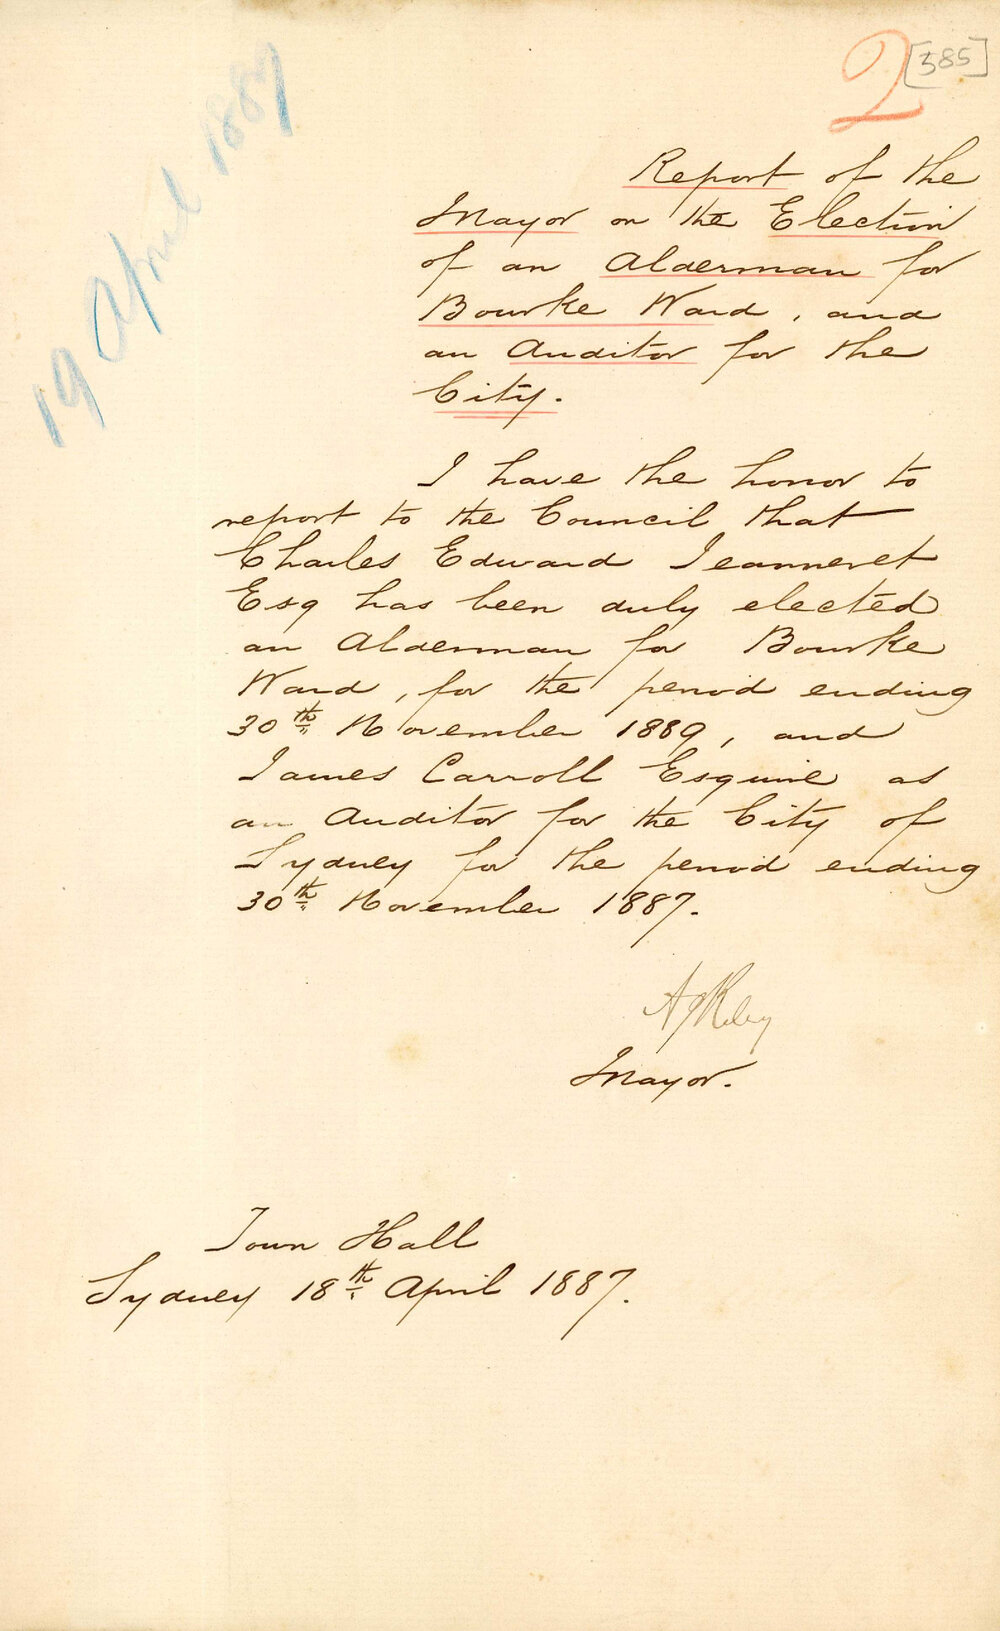 19 April 1887
2 [385]
Report of the
Mayor on the Election
of an Alderman for
Bourke Ward, and
an Auditor for the
City.
I have the honor to
report to the Council that
Charles Edward Jeanneret
Esq has been duly elected
an Alderman for Bourke
Ward, for the period ending
30th November 1889, and
James Carroll Esquire as
an Auditor for the City of
Sydney for the period ending
30th November 1887.
A J Riley
Mayor.
Town Hall
Sydney 18th April 1887.